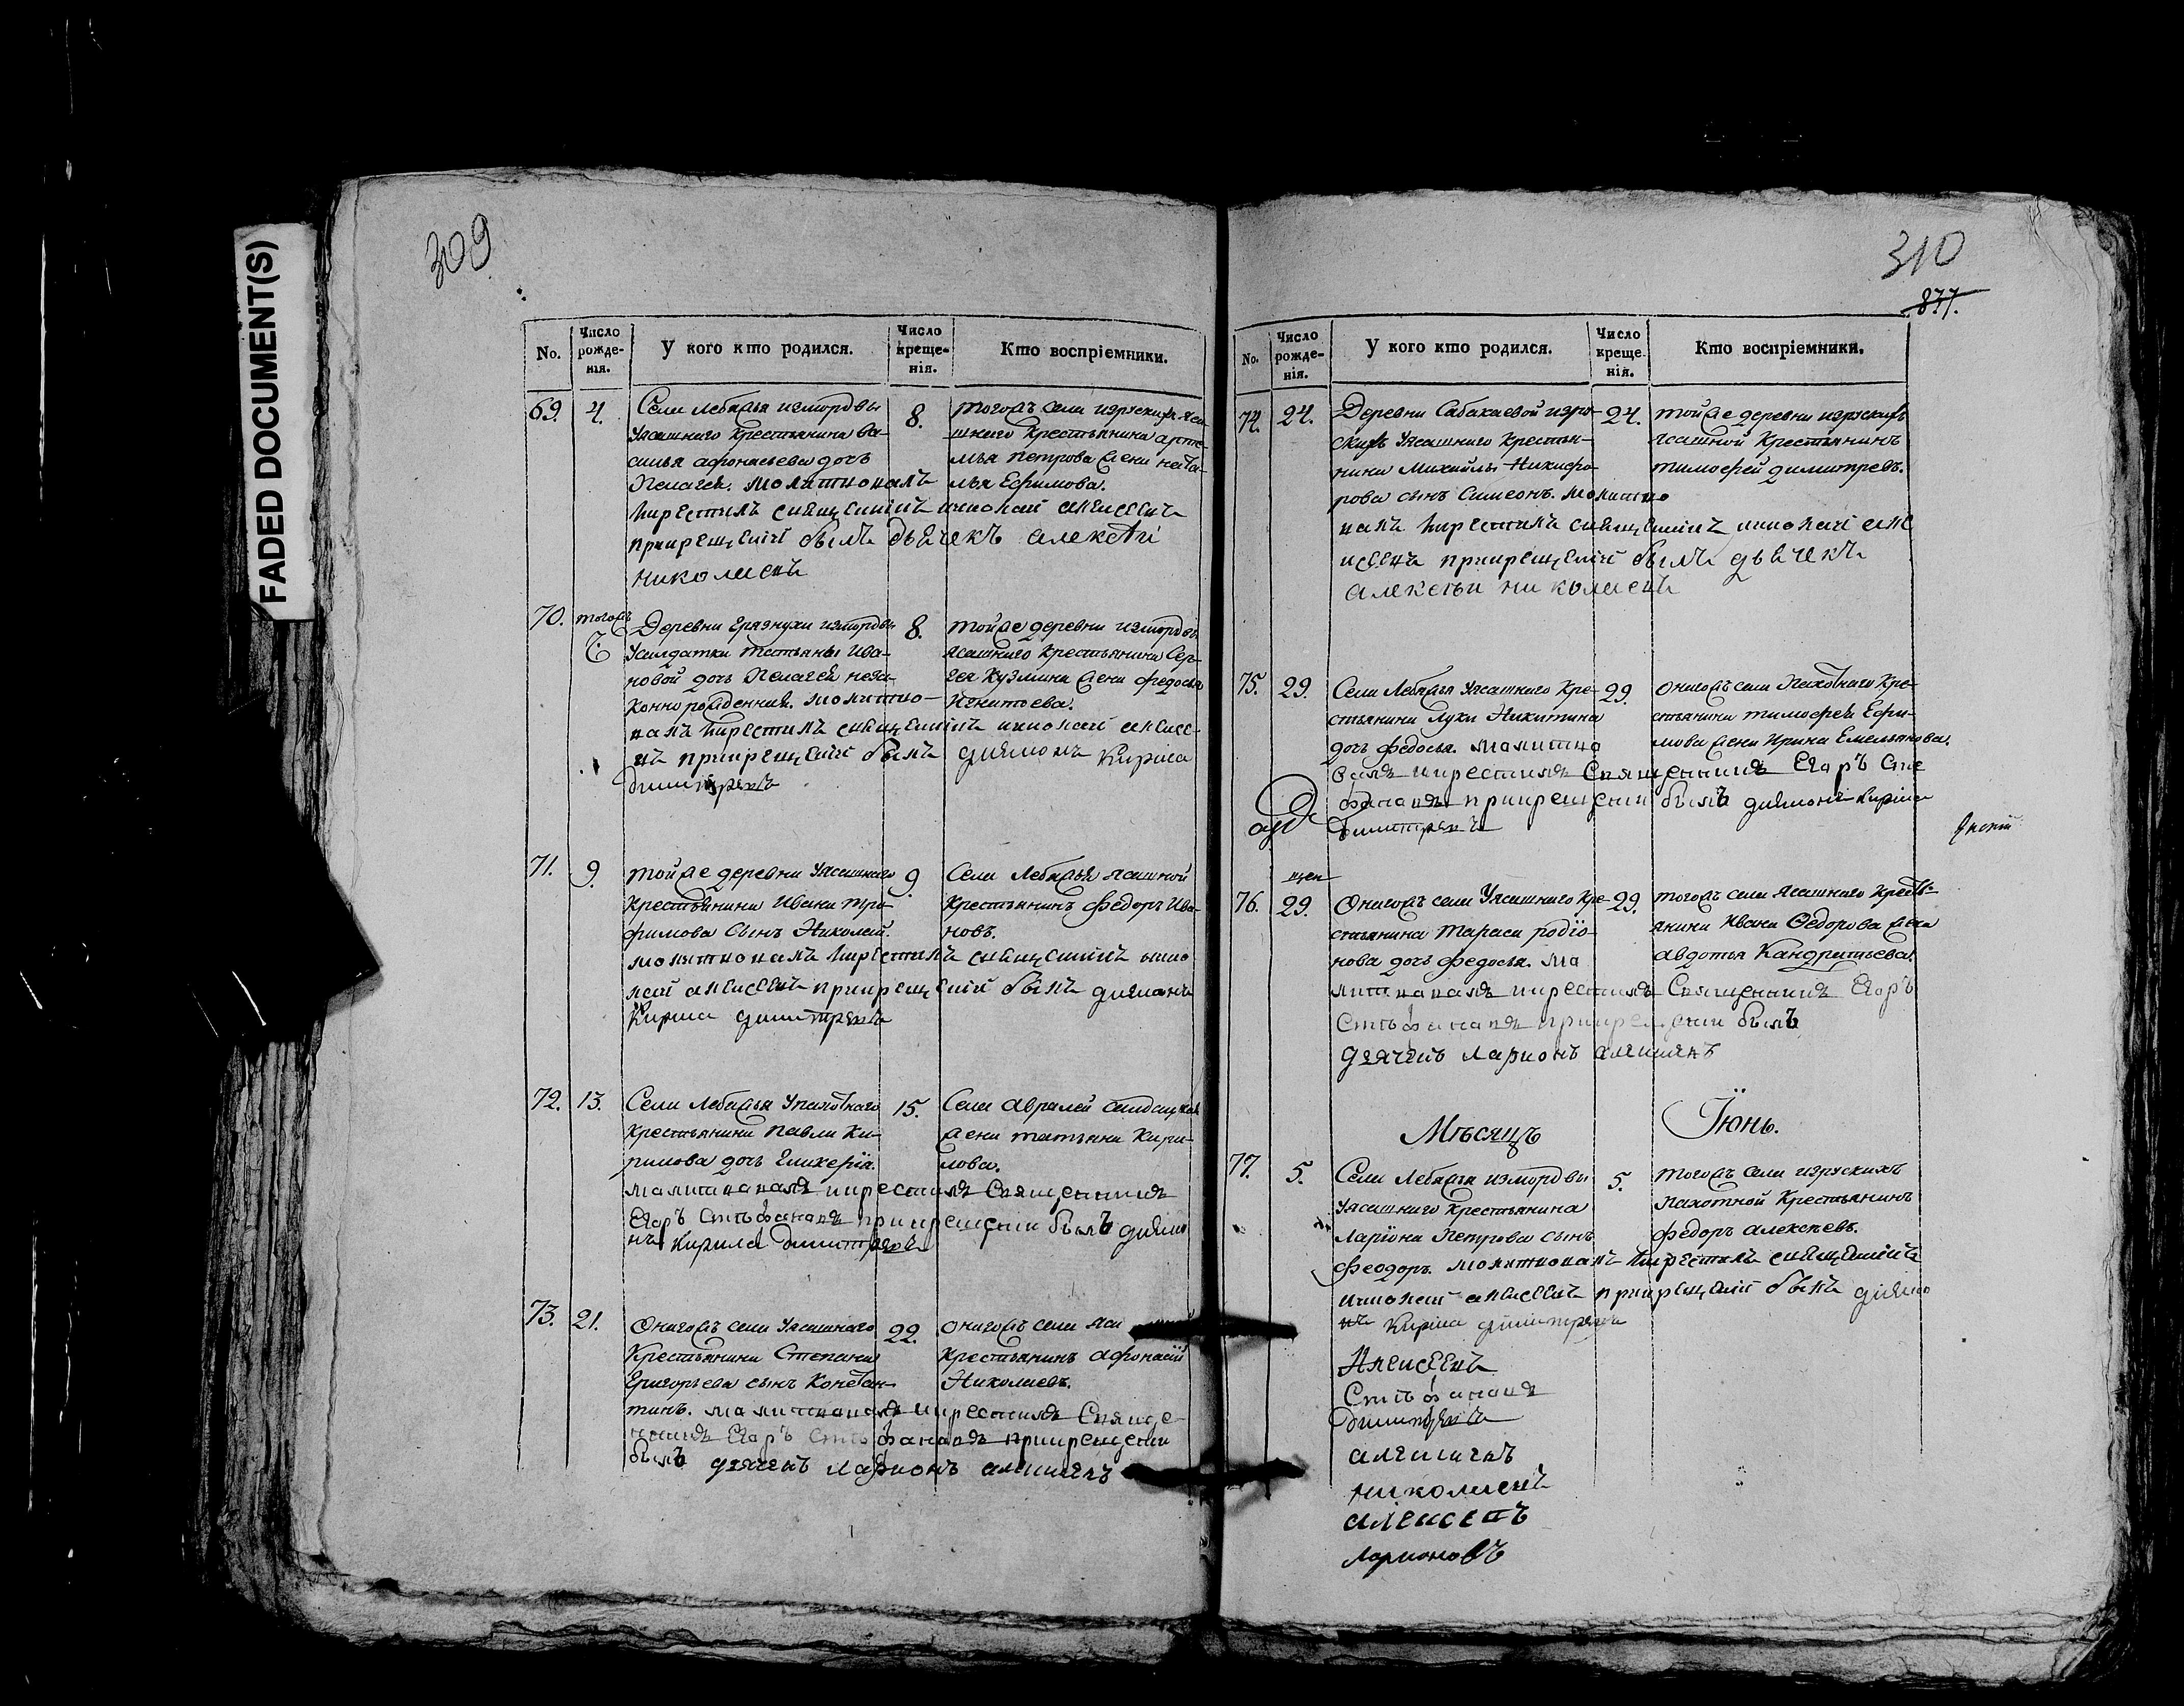 FADED DOCUMENT(S)
309
No.
Число рожде-нія.
У кого кто родился.
Число креще-нія.
Кто воспріемники.
69.
4.
Села Лебяжья измордвы
Уясашнаго Крестьянина Ва-
силья афонасьева дочь
Пелагея. молитвовалъ
Крестилъ священникъ николай алексеевъ
прикрещеніи былъ дьячекъ алексѣй
николаевъ
8.
тогожъ села изрускихъ яса-
шнаго Крестьянина арте-
мья петрова жена ната-
лья Ефимова.
70.
тогожъ
Ч.
Деревни грязнухи измордвы
Усалдатки татьяны Ива-
новой дочь Пелагея неза-
коннорожденная. молитво-
валъ Крестилъ священникъ николай алексее-
въ прикрещеніи былъ діяконъ Кирила
димитревъ
8.
тойже деревни измордвы
ясашнаго крестьянина Сер-
гея Кузмина жена федосья
Игнатьева.
71.
9.
тойже деревни Уясашнаго
Крестьянина Ивана тро-
фимова Сынъ Николай.
молитвовалъ Крестилъ священникъ нико
лай алексеевъ прикрещеніи былъ діяконъ
Кирила димитревъ
9
Села Лебяжья ясашной
Крестьянинъ Федоръ Ива-
новъ.
72.
13.
Села Лебяжья Упахотнаго
Крестьянина Павла Ки-
рилова дочь Гликерія.
малитвавалъ икрестилъ Священникъ
Егоръ Стефановъ прикрещении былъ діяко
нъ Кирила димитревъ
15.
Села авралей салдацкая
жена татьяна Кири-
лова.
73.
21.
Оногожъ села Уясашнаго
Крестьянина Степана
Григорьева сынъ Констан-
тинъ. малитвавалъ икрестилъ Свяще
нникъ Егоръ Стефановъ прикрещении
былъ дьячекъ Ларионъ
22.
Оногожъ села яса
крестьянинъ афонасій
Николаевъ.
310
877.
No.
Число рожде-нія.
У кого кто родился.
Число креще-нія.
Кто воспріемники.
74.
24.
Деревни Сабакаевой изру-
скихъ Уясашнаго Крестья-
нина Михайлы Никифо-
рова сынъ Симеонъ. молитво
валъ Крестилъ священникъ николай але
ксеевъ прикрещеніи былъ дьячекъ
алексѣй николаевъ
24.
тойже деревни изрускихъ
ясашной Крестьянинъ
тимофей димитревъ.
75.
29.
Села Лебяжья Уясашнаго Кре-
стьянина Луки Никитина
дочь федосья. малитво
валъ икрестилъ Священникъ Егоръ Сте
фановъ прикрещении былъ діяконъ Кирила
димитревъ
29.
Оногожъ села Пахотнаго Кре-
стьянина тимофея Ефи-
мова жена Ирина Емельянова.
76.
29.
Оногожъ села Уясашнаго Кре-
стьянина тараса родіо-
нова дочь федосья. ма
литвавалъ икрестилъ Священникъ Егоръ
Стефановъ прикрещении былъ
дьячекъ Ларионъ
29.
тогожъ села ясашнаго Кресть-
янина Ивана Федорова жена
авдотья Кандратьева.
Мѣсяцъ
Іюнь.
77.
5.
Села Лебяжья измордвы
Уясашнаго Крестьянина
Ларіона Петрова сынъ
феодоръ. молитвовалъ Крестилъ священникъ
николай алексеевъ прикрещеніи былъ діяко
нъ Кирила димитревъ
5.
тогожъ села изрускихъ
Пахотной Крестьянинъ
федоръ алексѣевъ.
Алексеевъ
Стефановъ
димитревъ
николаевъ
алексеевъ
Ларионовъ